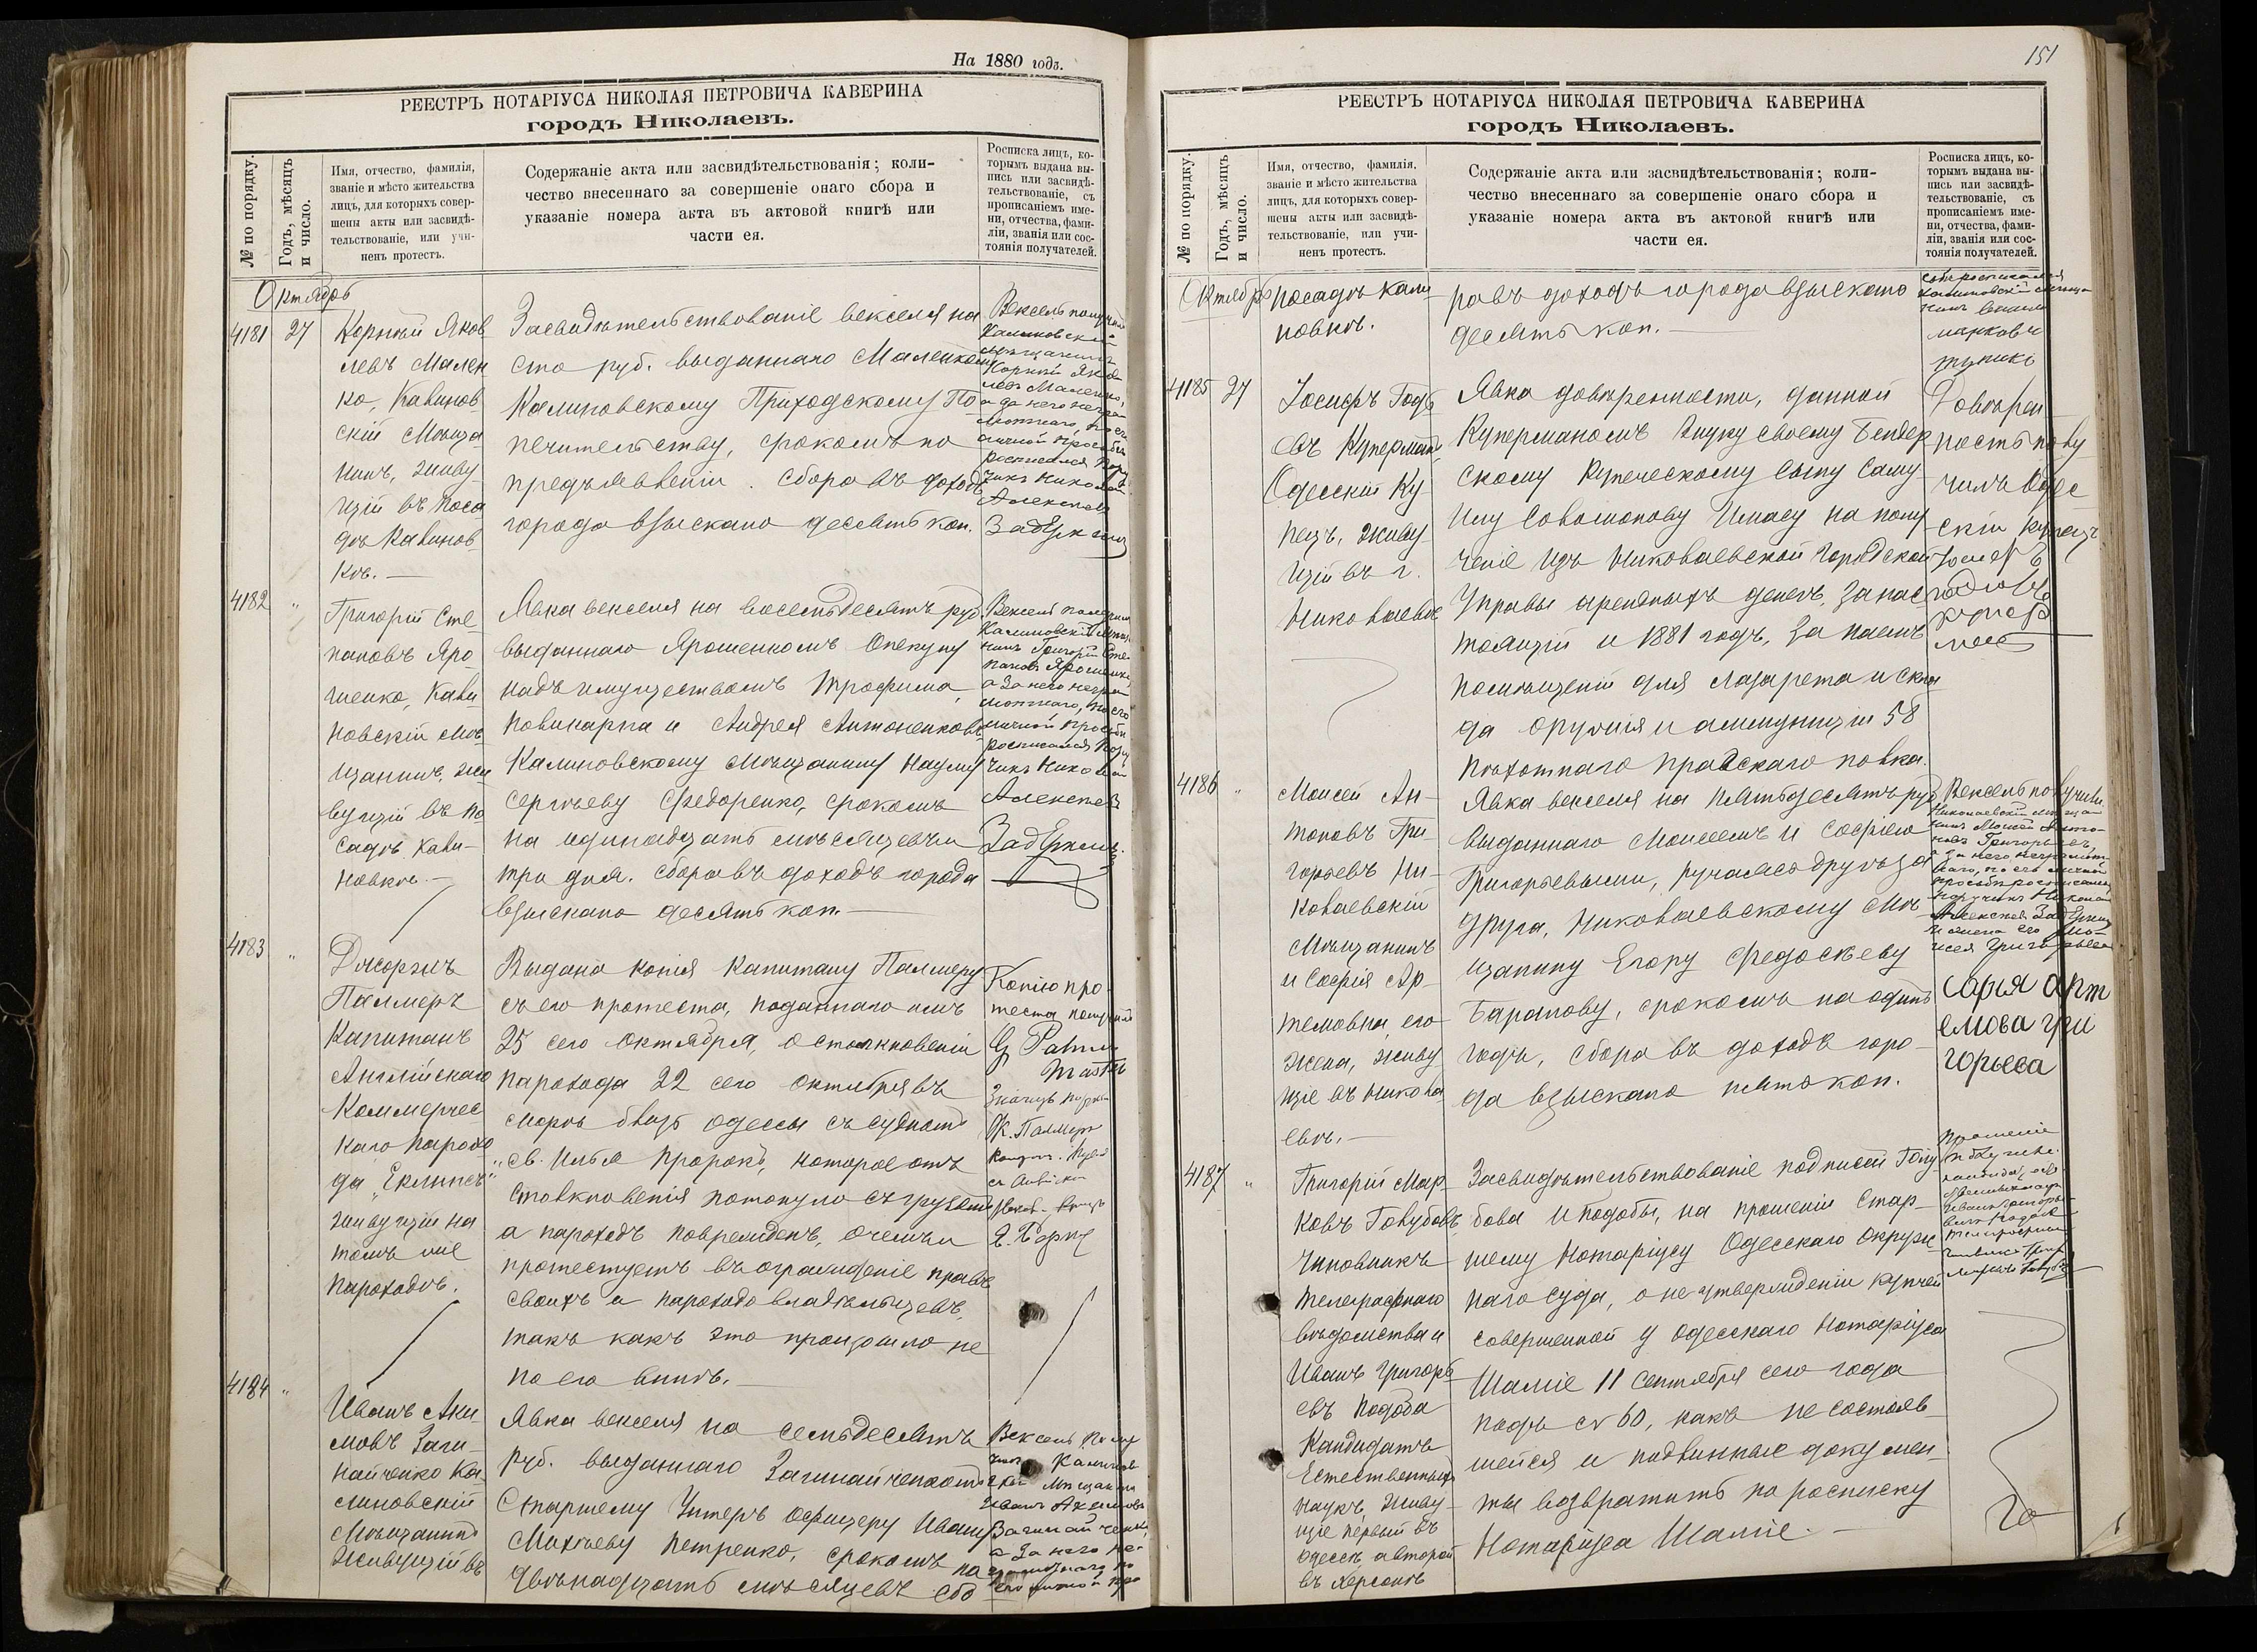 На 1880 годъ.
РЕЕСТРЪ НОТАРІУСА НИКОЛАЯ ПЕТРОВИЧА КАВЕРИНА
городъ Николаевъ.
№ по порядку.
Годъ, мѣсяцъ
и число.
Имя, отчество, фамилія,
званіе и мѣсто жительства
лицъ, для которыхъ совер-
шены акты или засвидѣ-
тельствованіе, или учи-
ненъ протестъ.
Содержаніе акта или засвидѣтельствованія; коли-
чество внесеннаго за совершеніе онаго сбора и
указаніе номера акта въ актовой книгѣ или
части ея.
Росписка лицъ, ко-
торымъ выдана вы-
пись или засвидѣ-
тельствованіе, съ
прописаніемъ име-
ни, отчества, фами-
ліи, званія или сос-
тоянія получателей.
Октябрь
4181 27
Корній Яков
левъ Мален
ко, Калинов
скій Мѣща
нинъ, живу
щій въ поса
дѣ Калинов
кѣ.
Засвидѣтельствованіе векселя на
сто руб. выданнаго Маленкомъ
Калиновскому Приходскому По
печительству, срокомъ по
предъявленіи. Сбора въ доходъ
города взыскано десять коп.
Вексель получилъ
Калиновскій
мѣщанинъ
Корній Яков
левъ Маленко,
а за него негра
мотнаго, по его
личной просьбѣ
росписался Пору
чикъ Николай
Алексѣевъ
4182 "
Григорій Сте
пановъ Яро
шенко, Кали
новскій мѣ
щанинъ, жи
вущій въ по
садѣ Кали-
новкѣ.
Явка векселя на восемьдесятъ руб.
выданнаго Ярошенкомъ Опекуну
надъ имуществомъ Трофима,
Поликарпа и Андрея Антоненковъ
Калиновскому мѣщанину Науму
Сергѣеву Федоренко, срокомъ
на одинадцать мѣсяцевъ и
три дня. Сбора въ доходъ города
взыскано десять коп.
Вексель получилъ
Калиновскій мѣща
нинъ Григорій Сте
пановъ Ярошенко
а за него негра
мотнаго, по его
личной просьбѣ
росписался Пору
чикъ Николай
Алексѣевъ
4183 "
Джорзжъ
Палмеръ
Капитанъ
Англійскаго
Коммерчес
каго парохо
да „Еклипсъ"
живущій на
томъ же
пароходѣ.
Выдана копія Капитану Палмеру
съ его протеста, поданнаго имъ
25 сего Октября, о столкновеніи
парохода 22 сего Октября въ
морѣ близь Одессы съ судномъ
„Св. Илья Пророкъ, которое отъ
столкновенія потонуло съ грузомъ
а пароходъ поврежденъ, о чемъ и
протестуетъ въ огражденіе правъ
своихъ и пароходовладѣльцевъ,
такъ какъ это произошло не
по его винѣ.
Копію про-
теста получилъ
G Palmer
Master
4184 "
Иванъ Аки
мовъ Заги-
найченко Ка-
линовскій
Мѣщанинъ
живущій въ
Явка векселя на семьдесятъ
руб. выданнаго Загинайченкомъ
Старшему Унтеръ офицеру Ивану
Матвѣеву Петренко, срокомъ на
двѣнадцать мѣсяцевъ сбо
Вексель полу
чилъ Калинов
скій Мѣщанинъ
Иванъ Акимовъ
Загинайченко,
а за него не-
грамотнаго по
его личной про
151
РЕЕСТРЪ НОТАРІУСА НИКОЛАЯ ПЕТРОВИЧА КАВЕРИНА
городъ Николаевъ.
№ по порядку.
Годъ, мѣсяцъ
и число.
Имя, отчество, фамилія,
званіе и мѣсто жительства
лицъ, для которыхъ совер-
шены акты или засвидѣ-
тельствованіе, или учи-
ненъ протестъ.
Содержаніе акта или засвидѣтельствованія; коли-
чество внесеннаго за совершеніе онаго сбора и
указаніе номера акта въ актовой книгѣ или
части ея.
Росписка лицъ, ко-
торымъ выдана вы-
пись или засвидѣ-
тельствованіе, съ
прописаніемъ име-
ни, отчества, фами-
ліи, званія или сос-
тоянія получателей.
Октябрь
посадѣ Кали
новкѣ.
ра въ доходъ города взыскано
десять коп.
4185 27
Іосифъ Годе
евъ Куперманъ
Одесскій Ку
пецъ, живу
щій въ г.
Николаевѣ
Явка довѣренности, данной
Куперманомъ Внуку своему Бендер
скому Купеческому сыну Саму
илу Соломонову на полу
ченіе изъ Николаевской Городской
Управы арендныхъ денегъ, за нас
тоящій и 1881 годъ, за наемъ
помѣщеній для лазарета и скла
да оружія и аммуниціи 58
пѣхотнаго Пражскаго полка.
Довѣрен
ность полу
чилъ Одес
скій купецъ
4186 "
Моисей Ан-
тоновъ Гри-
горьевъ Ни-
колаевскій
Мѣщанинъ
и Софія Ар-
темовна, его
жена, живу
щіе въ Никола
евѣ.
Явка векселя на пятьдесятъ руб.
выданнаго Моисеемъ и Софіею
Григорьевыми, ручаясь другъ за
друга, Николаевскому Мѣ
щанину Егору Федосѣеву
Баранову, срокомъ на одинъ
годъ, сбора въ доходъ горо-
да взыскано пять коп.
Вексель получили
Николаевскій мѣща
нинъ Моисей Анто-
новъ Григорьевъ,
а за него неграмот
наго, по его личной
просьбѣ росписался
поручикъ Николай
софья арт
емова гри
горьева
4187 "
Григорій Мар
ковъ Голубовъ,
Чиновникъ
Телеграфнаго
вѣдомства и
Иванъ Григорь
евъ Подоба
Кандидатъ
Естественныхъ
Наукъ, живу
щіе первый въ
Одессѣ а второй
въ Херсонѣ
Засвидѣтельствованіе подписей Голу
бова и Подобы, на прошеніи Стар-
шему Нотаріусу Одесскаго Окруж
наго суда, о не утвержденіи купчей
совершенной у Одесскаго Нотаріуса
Шаміе 11 Сентября сего года
подъ № 60, какъ не состояв
шейся и подлинные докумен-
ты возвратить по росписку
Нотаріуса Шаміе.
Прошеніе